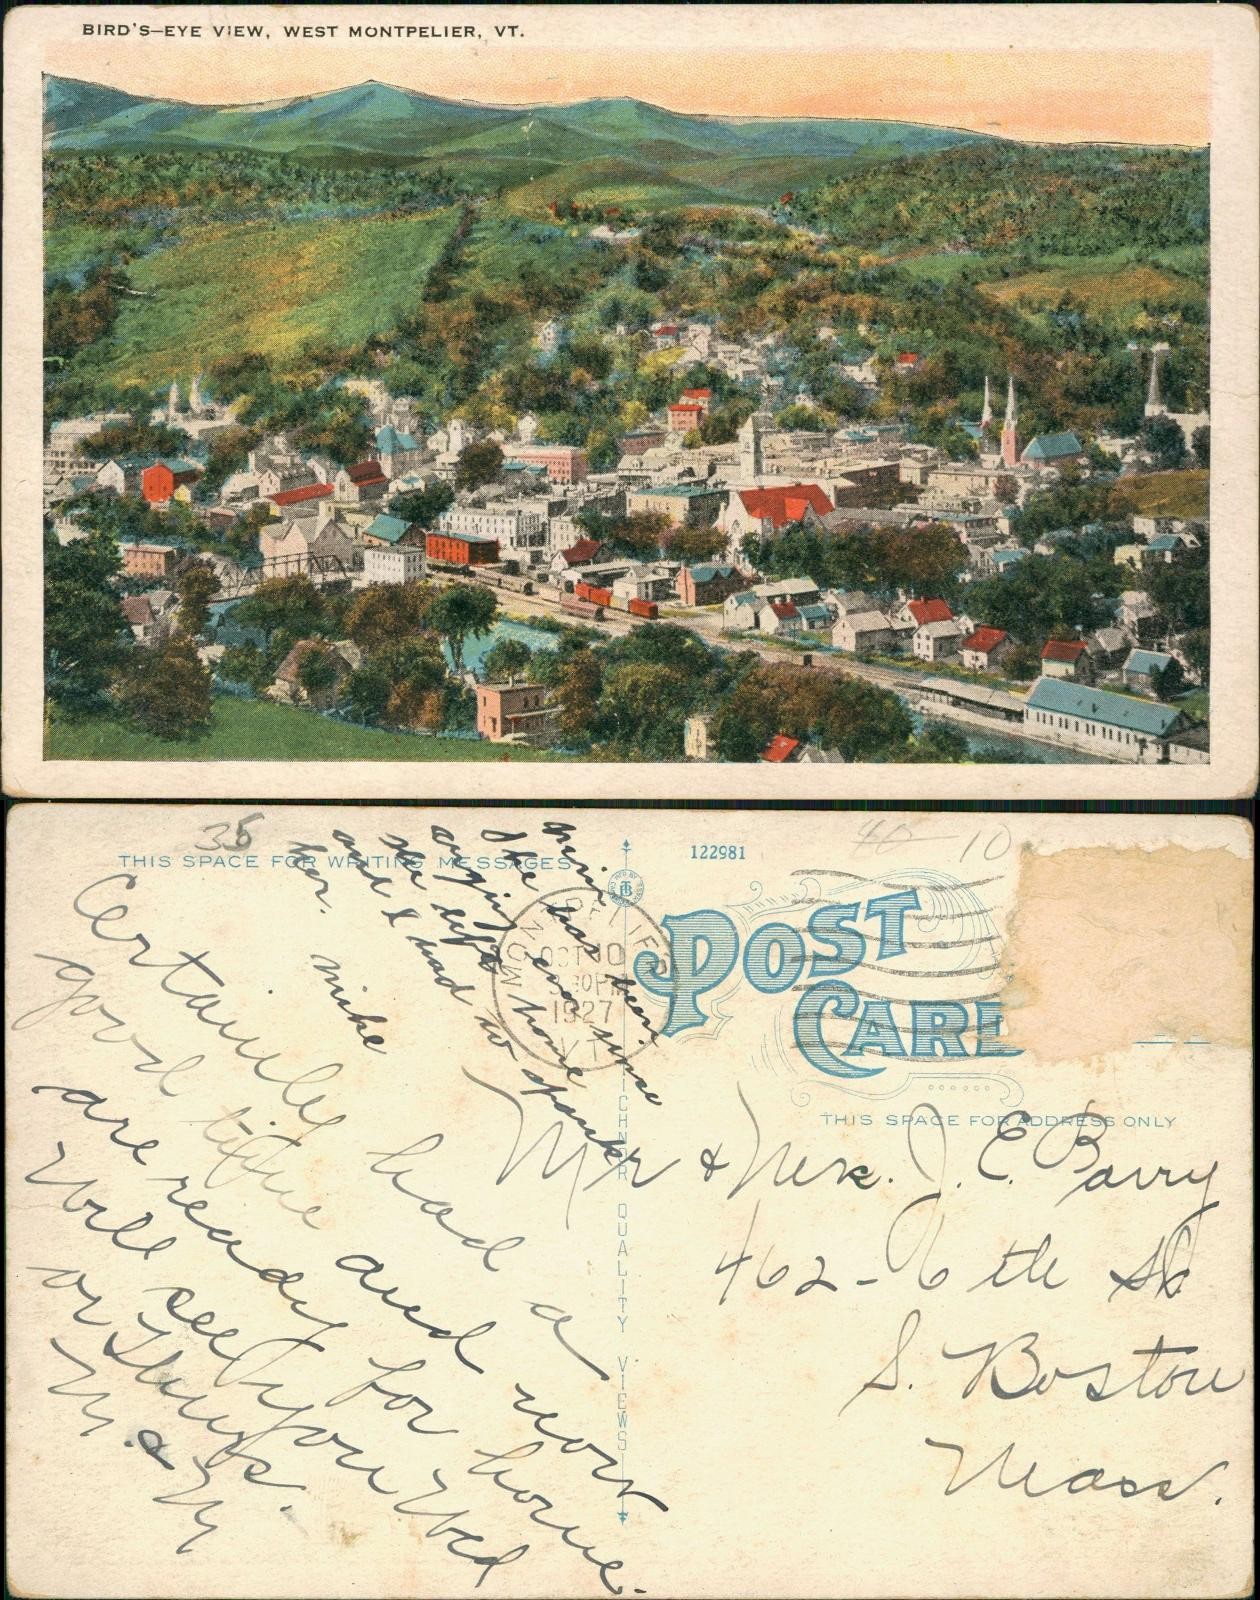 BIRD'S-EYE VIEW, WEST MONTPELIER, VT.
35
THIS SPACE FOR WRITING MESSAGES
122981
40 10
POST
CARD
MONTPELIER
OCT 10
30 PM
1927
VT.
THIS SPACE FOR ADDRESS ONLY
Certainly had a
good time and now
are ready for home.
Will see you Wed
or Thurs.
M. & M
The has been
crying ever since
she left home
and I had to spank
her. mike
TICHNOR QUALITY VIEWS
Mr & Mrs. J. E. Barry
462-6th St
S. Boston
Mass.